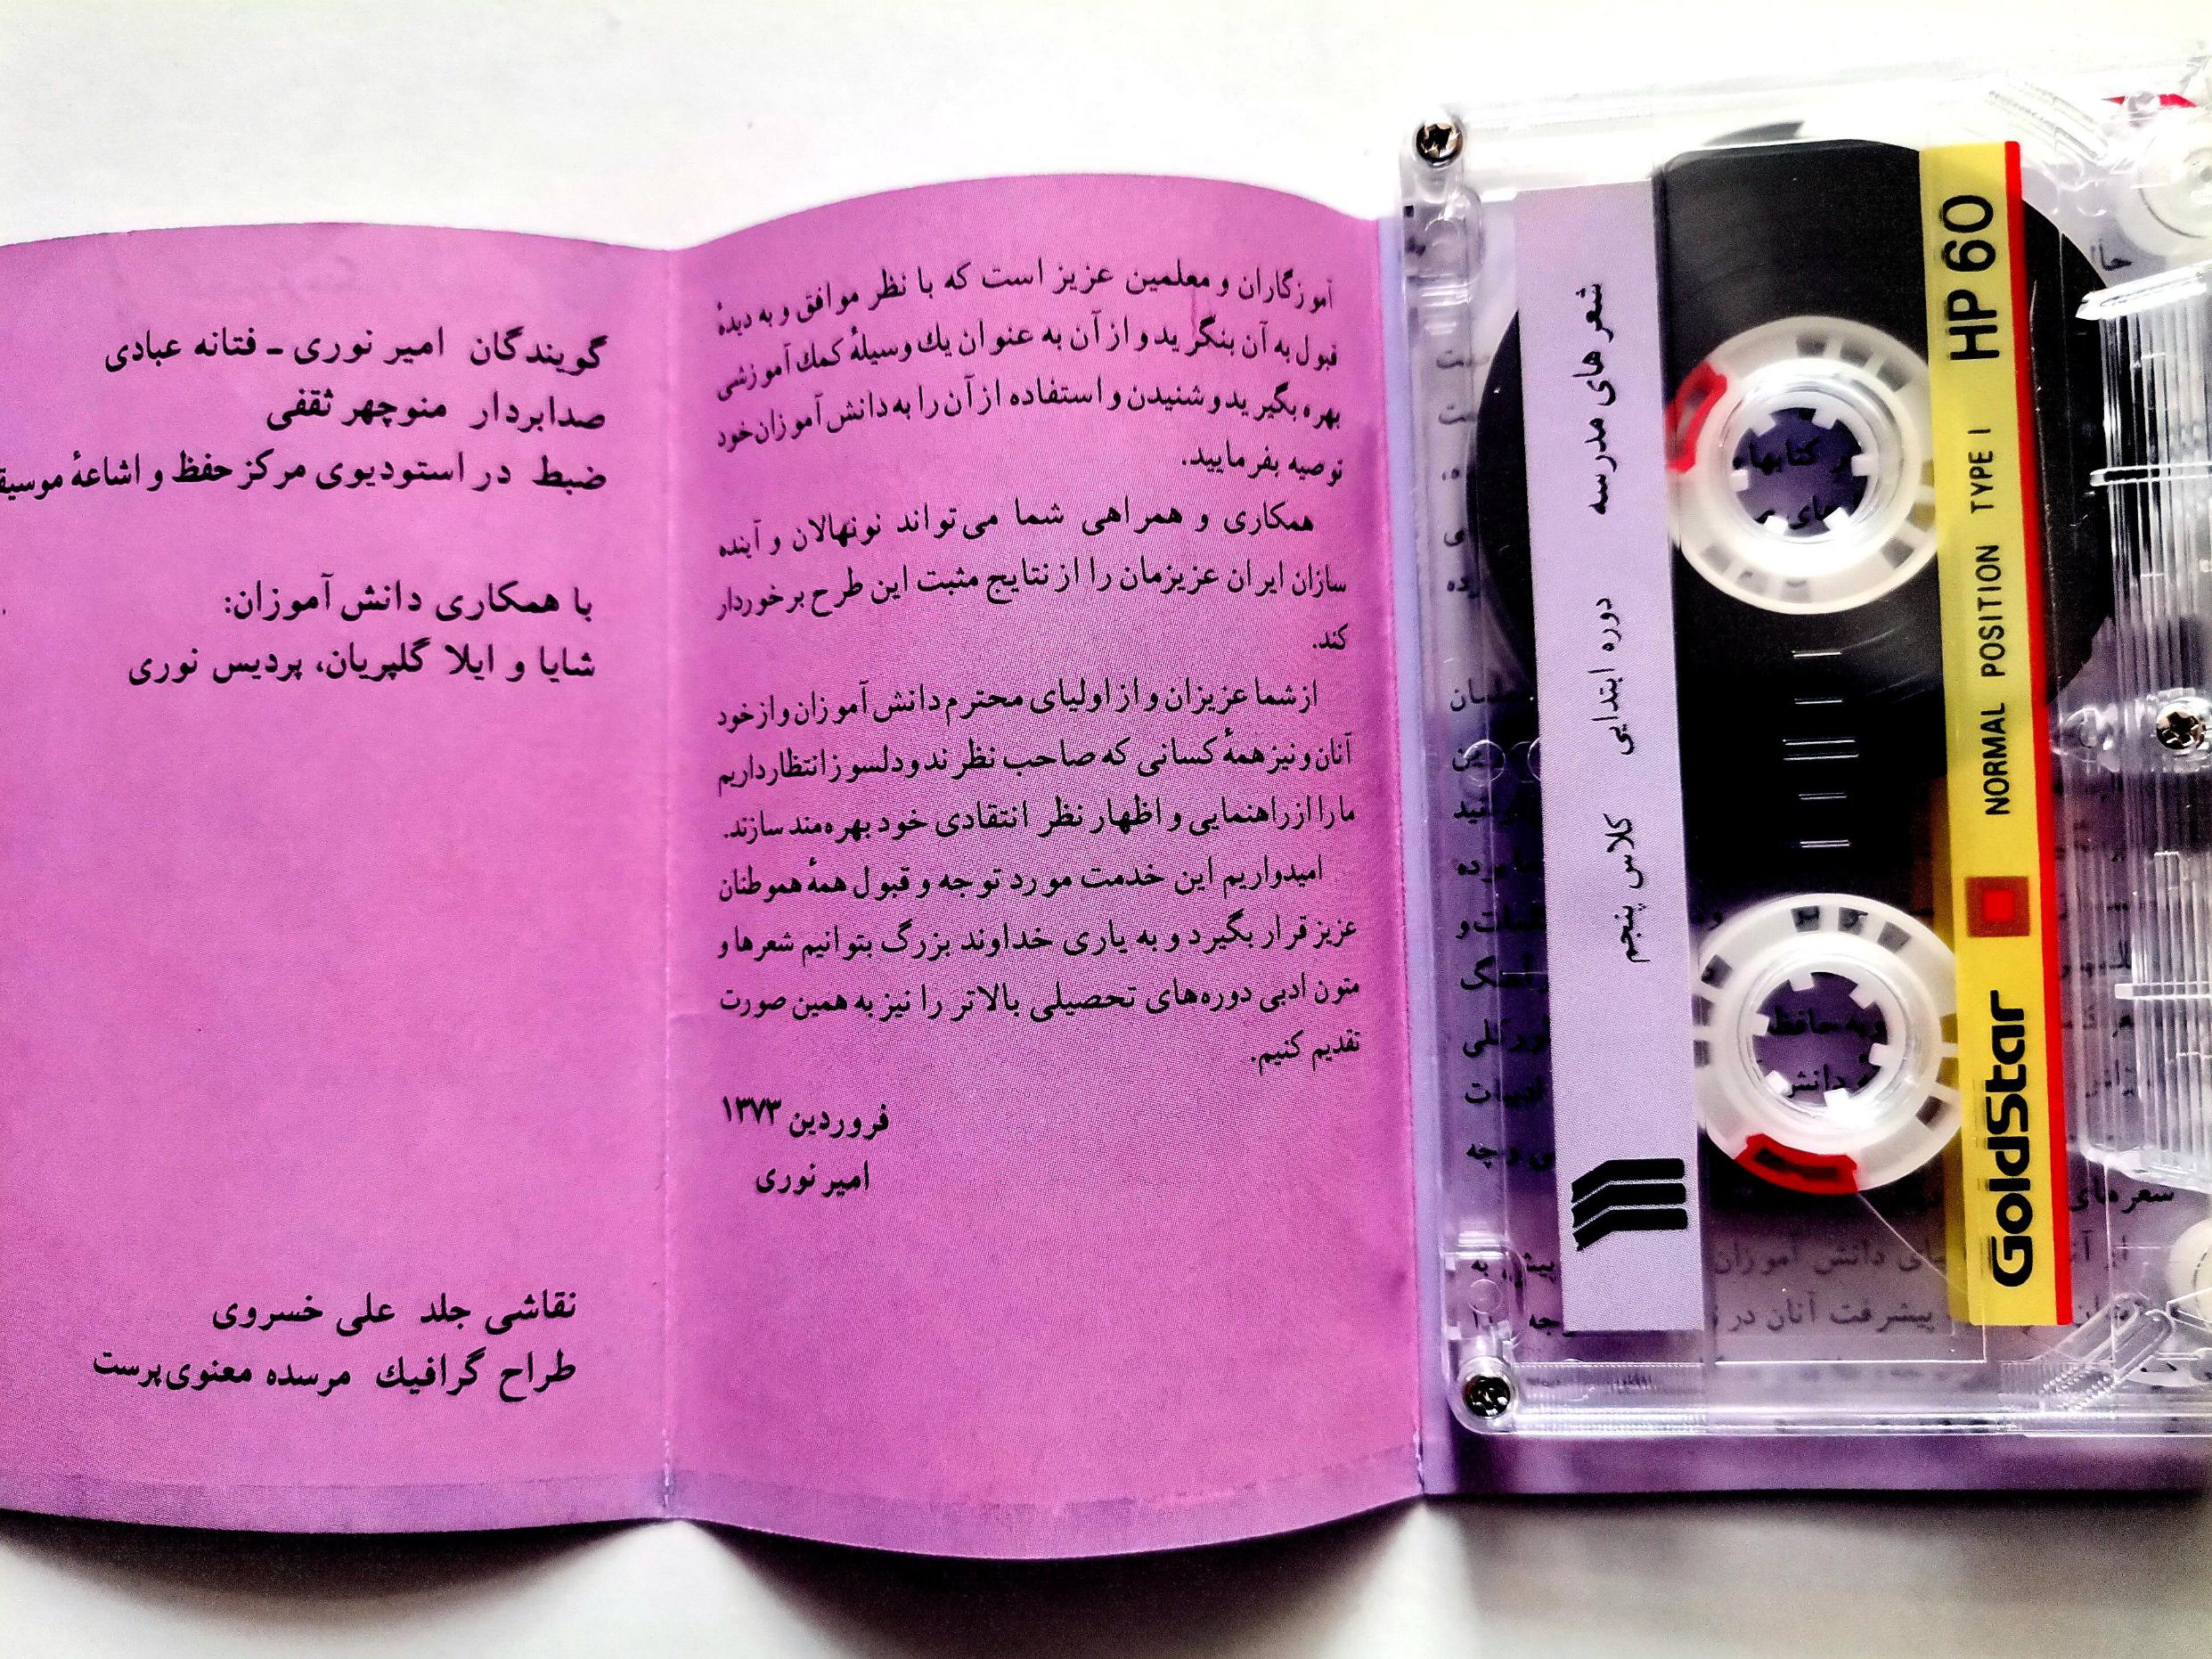 گویندگان امیر نوری ـ فتانه عبادی
صدابردار منوچهر ثقفی
ضبط در استودیوی مرکز حفظ و اشاعهٔ
با همکاری دانش آموزان:
شایا و ایلا گلپریان، پردیس نوری
نقاشی جلد علی خسروی
طراح گرافیك مرسده معنوی‌پرست
آموزگاران و معلمین عزیز است که با نظر موافق و به دیدهٔ
قبول به آن بنگرید و از آن به عنوان یك وسیلهٔ کمك آموزشی
بهره بگیرید و شنیدن و استفاده از آن را به دانش آموزان خود
توصیه بفرمایید.
همکاری و همراهی شما می‌تواند نونهالان و آینده
سازان ایران عزیزمان را از نتایج مثبت این طرح برخوردار
کند.
از شما عزیزان و از اولیای محترم دانش آموزان و از خود
آنان و نیز همهٔ کسانی که صاحب نظرند و دلسوز انتظار داریم
ما را از راهنمایی و اظهار نظر انتقادی خود بهره‌مند سازند.
امیدواریم این خدمت مورد توجه و قبول همهٔ هموطنان
عزیز قرار بگیرد و به یاری خداوند بزرگ بتوانیم شعرها و
متون ادبی دوره‌های تحصیلی بالاتر را نیز به همین صورت
تقدیم کنیم.
فروردین ۱۳۷۳
امیر نوری
شعرهای مدرسه دوره ابتدایی کلاس پنجم
GoldStar NORMAL POSITION TYPE I HP 60
دانش آموزان
پیشرفت آنان در